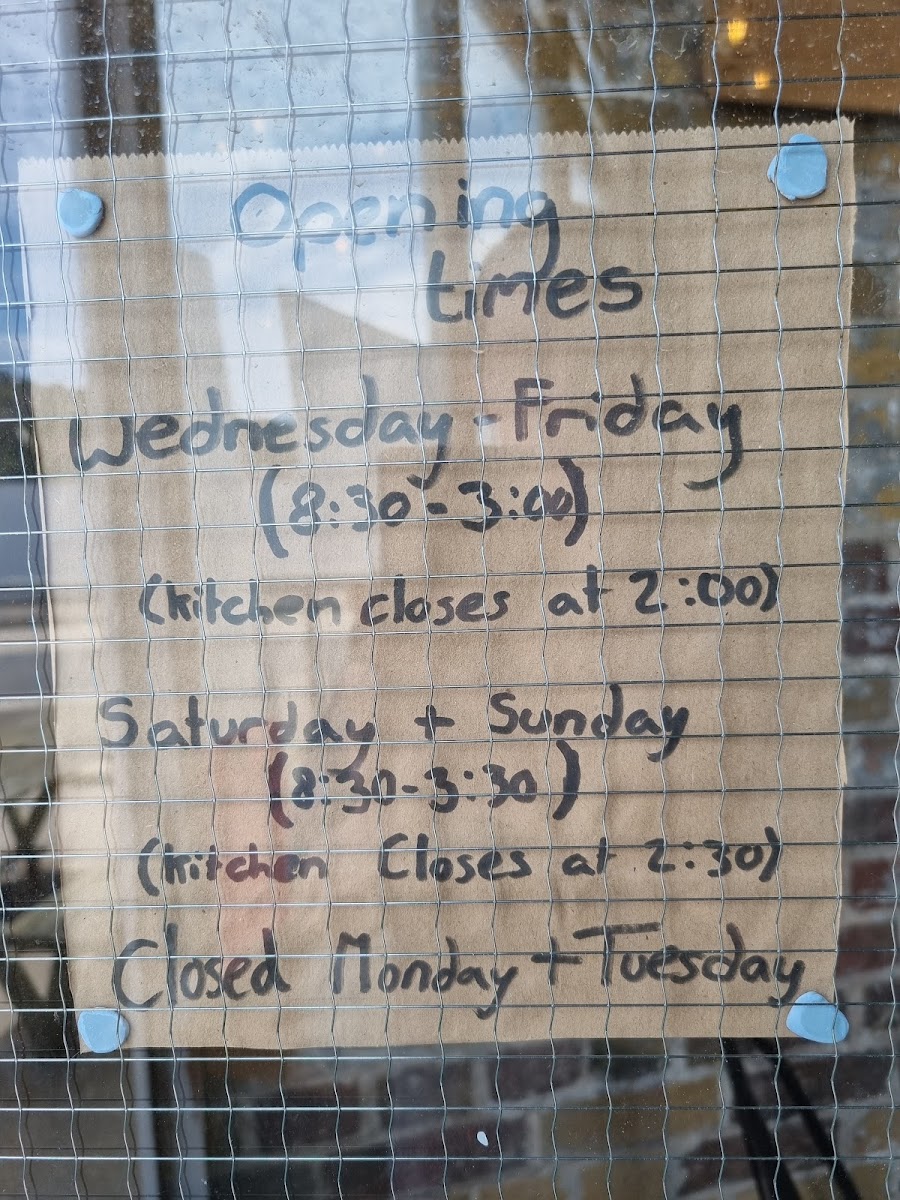 Opening
times
Wednesday - Friday
(8:30 - 3:00)
(kitchen closes at 2:00)
Saturday + Sunday
(8:30 - 3:30)
(kitchen Closes at 2:30)
Closed Monday + Tuesday